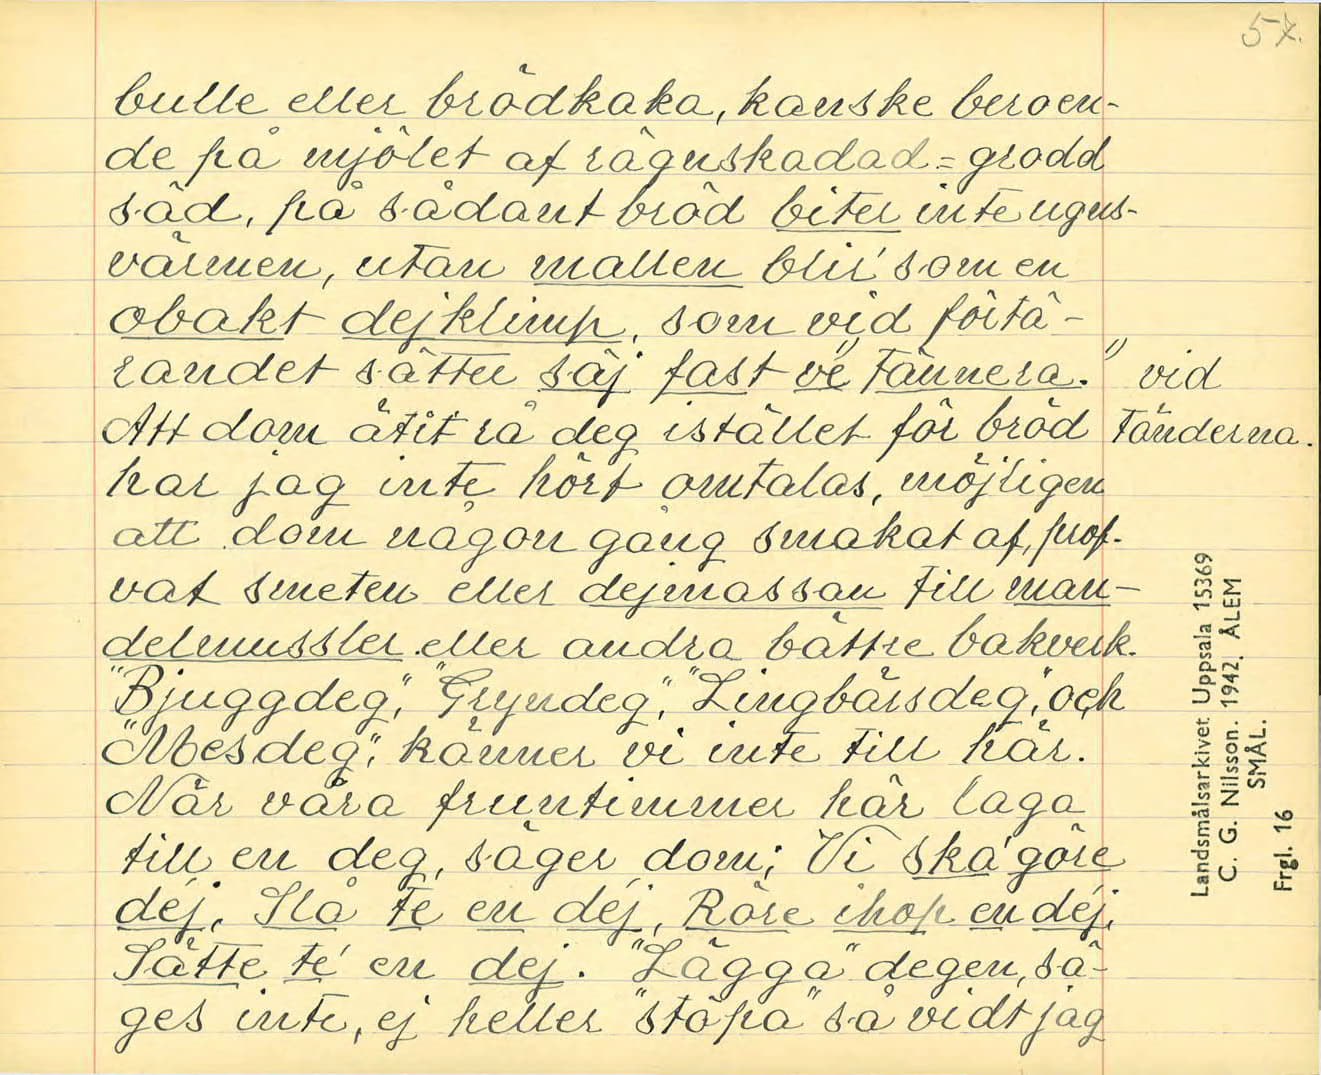 57.
bulle eller brödkaka, kanske beroen-
de på mjölet af rägnskadad = grodd
säd, på sådant bröd biter inte ugns-
värmen, utan mallen blir' som en
obakt dejklimp, som vid förtä-
randet sätter säj fast "ve tännera." vid
Att dom ätit rå deg istället för bröd tänderna.
har jag inte hört omtalas, möjligen
att dom någon gång smakat af, prof-
vat smeten eller dejmassan till man-
delmussler eller andra bättre bakverk.
"Bjuggdeg", "Gryndeg", "Lingbärsdeg", och
"Mesdeg", känner vi inte till här.
När våra fruntimmer här laga
till en deg, säger dom; Vi ska' göre
déj, Slå te en déj, Röre ihop en déj,
Sätte te' en dej. "Lägga" degen, sä-
ges inte, ej heller "stöpa" så vidt jag
Landsmålsarkivet Uppsala 15369
C. G. Nilsson. 1942. ÅLEM
SMÅL.
Frgl. 16